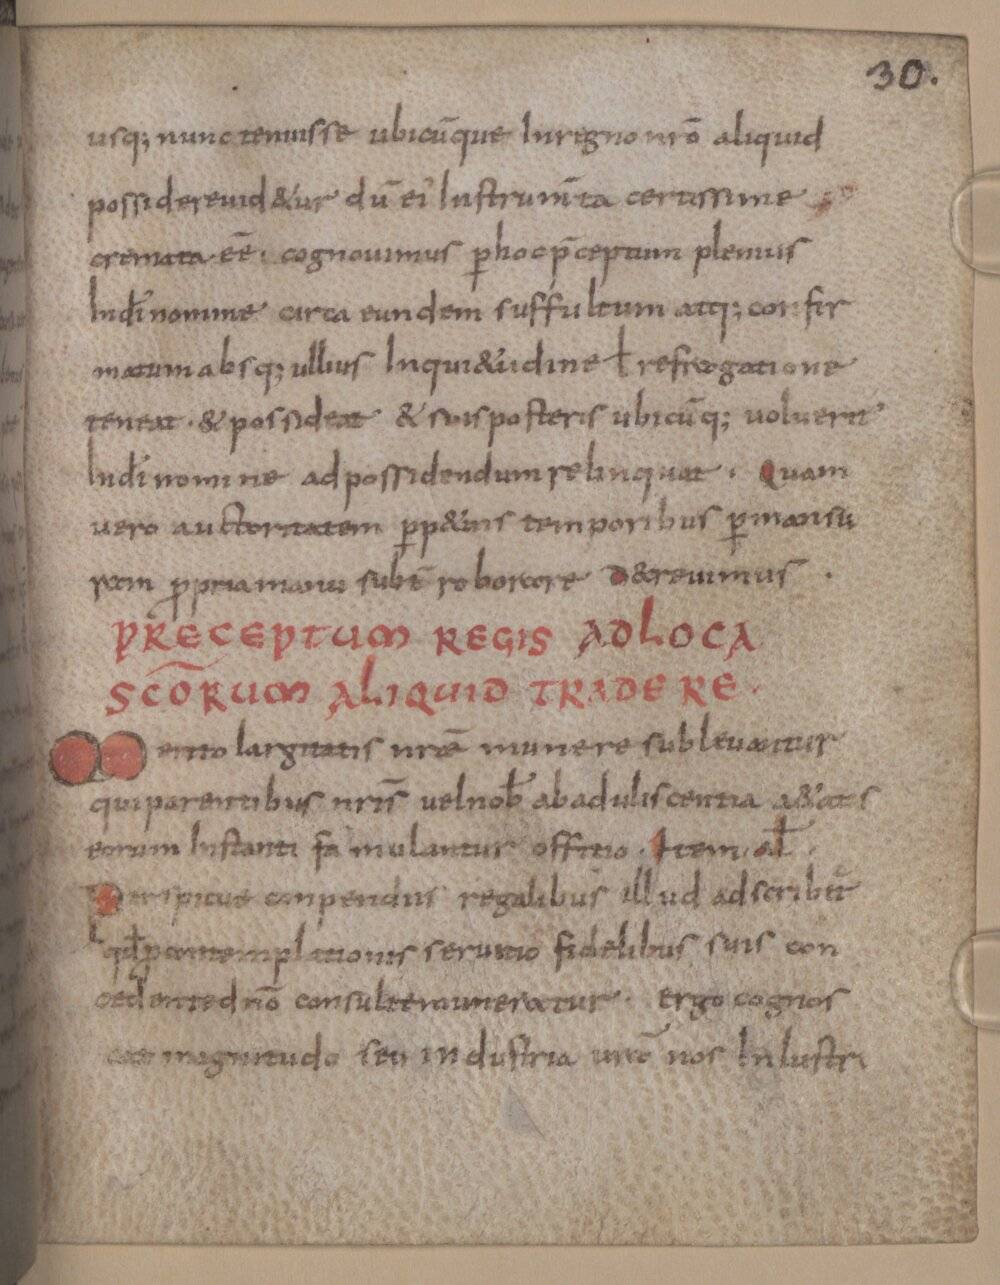 30.
usq; nunc tenuisse ubicūque In regno nr̄o aliquid
possidere uid&ur dū ei Instrum̄ta certissime
cremata eē· cognouimus p̱ hoc p̄ceptum plenius
Indī nomine circa eundem suffultum atq; confir
matum absq; ullius Inqui&udine ł refragatione
teneat · & possideat & suis posteris ubicūq; uoluerit
Indī nomine ad possidendum relinquat · Quam
uero auctoritatem p̱p&uis temporibus p̱mansu
ram propria manu subt̄ roborare decreuimus ·
PRECEPTUM REGIS AD LOCA
SCŌRUM ALIQUID TRADERE ·
Merito largitatis nr̄ae munere subleuantur
qui parentibus nr̄is uel nob̄ ab aduliscentia a&atis
eorum Instanti famulantur offitio · Item al̄ ·
Perspicue conpendiis regalibus illud adscribit̄
qd̄ p̱ contemplationis seruitio fidelibus suis con
cedente dn̄o consulte muneratur · ergo cognos
cat magnitudo seu industria ur̄a nos Inlustri